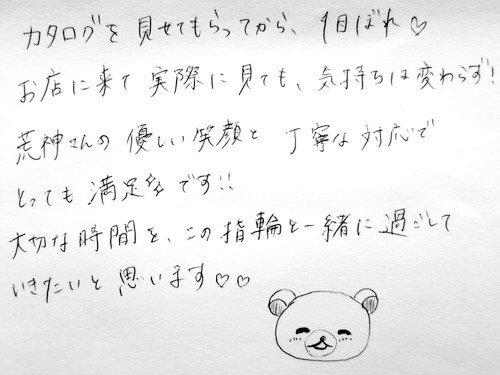 カタログを見せてもらってから、1目ぼれ♡
お店に来て実際に見ても、気持ちは変わらず!
荒神さんの優しい笑顔と丁寧な対応で
とっても満足です!!
大切な時間を、この指輪と一緒に過ごして
いきたいと思います♡♡